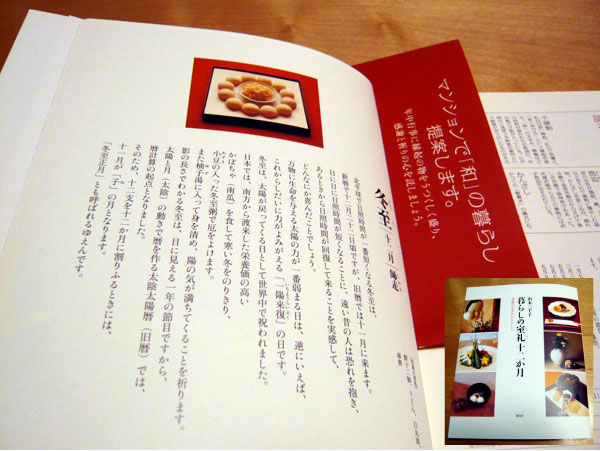 マンションで「和」の暮らし
提案します。
年中行事に縁起の物をうつくしく盛り、
感謝と祈りの心を託しましょう。
冬至 十二月 師走
北半球で日照時間が一番短くなる冬至は、
新暦で十二月二十二日頃ですが、旧暦では十一月に来ます。
日に日に日照時間が短くなることに、遠い昔の人は恐れを抱き、
あるときから日照時間が回復して来ることを実感して、
どんなにか喜んだことでしょう。
万物に生命を与える太陽の力が一番弱まる日は、逆にいえば、
これからしだいに力がよみがえる「一陽来復」の日です。
冬至は、太陽が戻ってくる日として世界中で祝われました。
日本では、南方から渡来した栄養価の高い
かぼちゃ「南瓜」を食して寒い冬をのりきり、
小豆の入った冬至粥で厄をよけます。
また柚子湯に入って身を清め、陽の気が満ちてくることを祈ります。
影の長さでわかる冬至は、目に見える一年の節目ですから、
太陽と月「太陰」の動きで暦を作る太陰太陽暦（旧暦）では、
暦計算の起点となりました。
そのため、十二支を十二か月に割りふるときには、
十一月が「子」の月となります。
「冬至正月」とも呼ばれるゆえんです。
暮らしの室礼十二か月